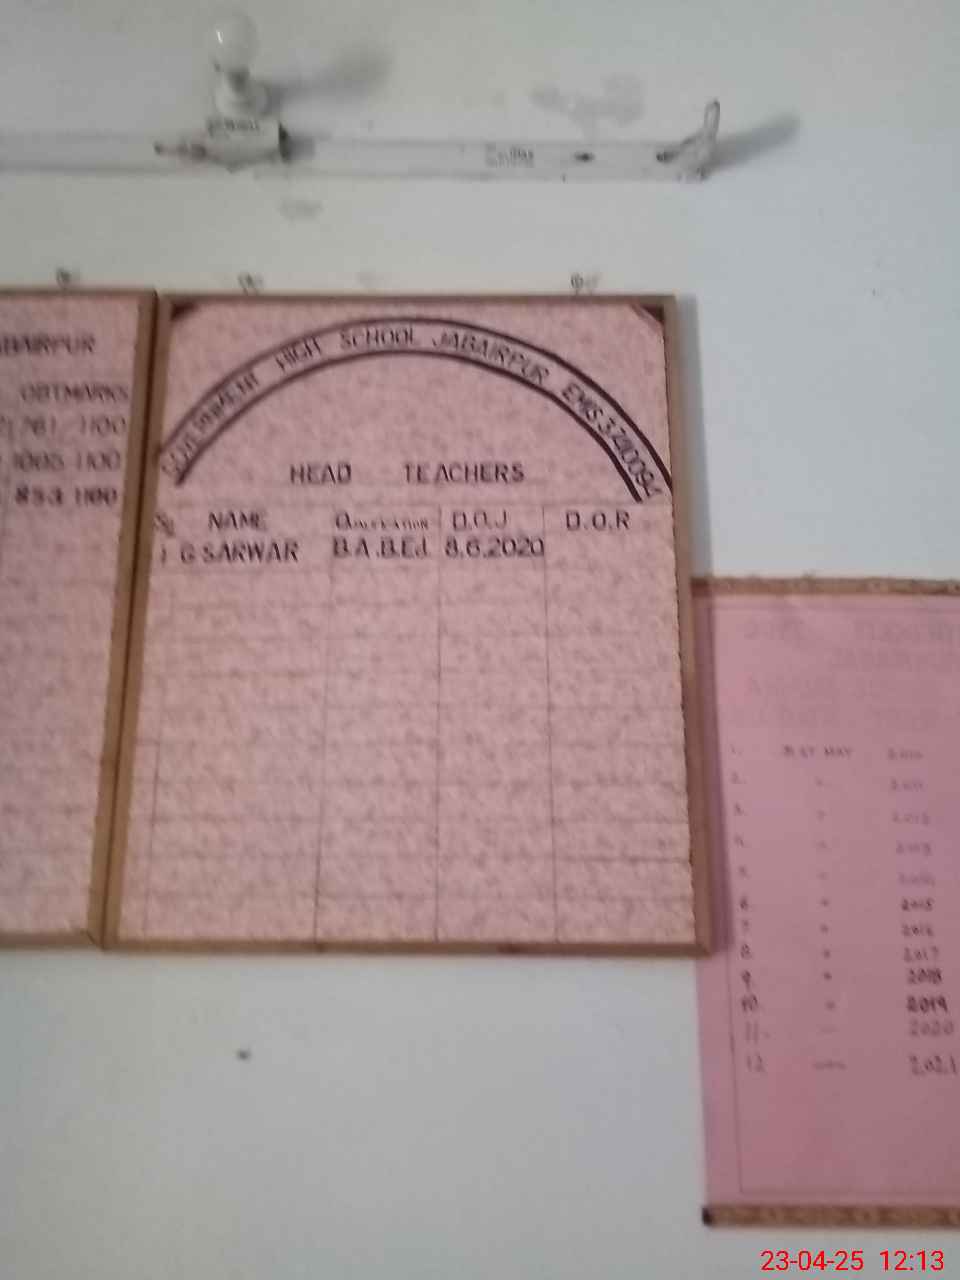 BAIRPUR
OBTMARKS
761/1100
1005 1100
853 1100
GOVERNMENT HIGH SCHOOL JABAIRPUR EMIS 3740094
HEAD TEACHERS
Sr NAME QUALIFICATION D.O.J D.O.R
1 G SARWAR B.A.B.Ed. 8.6.2020
1. 31 ST MAY
2.
3.
4.
5.
6. " 2015
7 " 2016
8. " 2017
9. " 2018
10. " 2019
11. 2020
12 2021
23-04-25 12:13